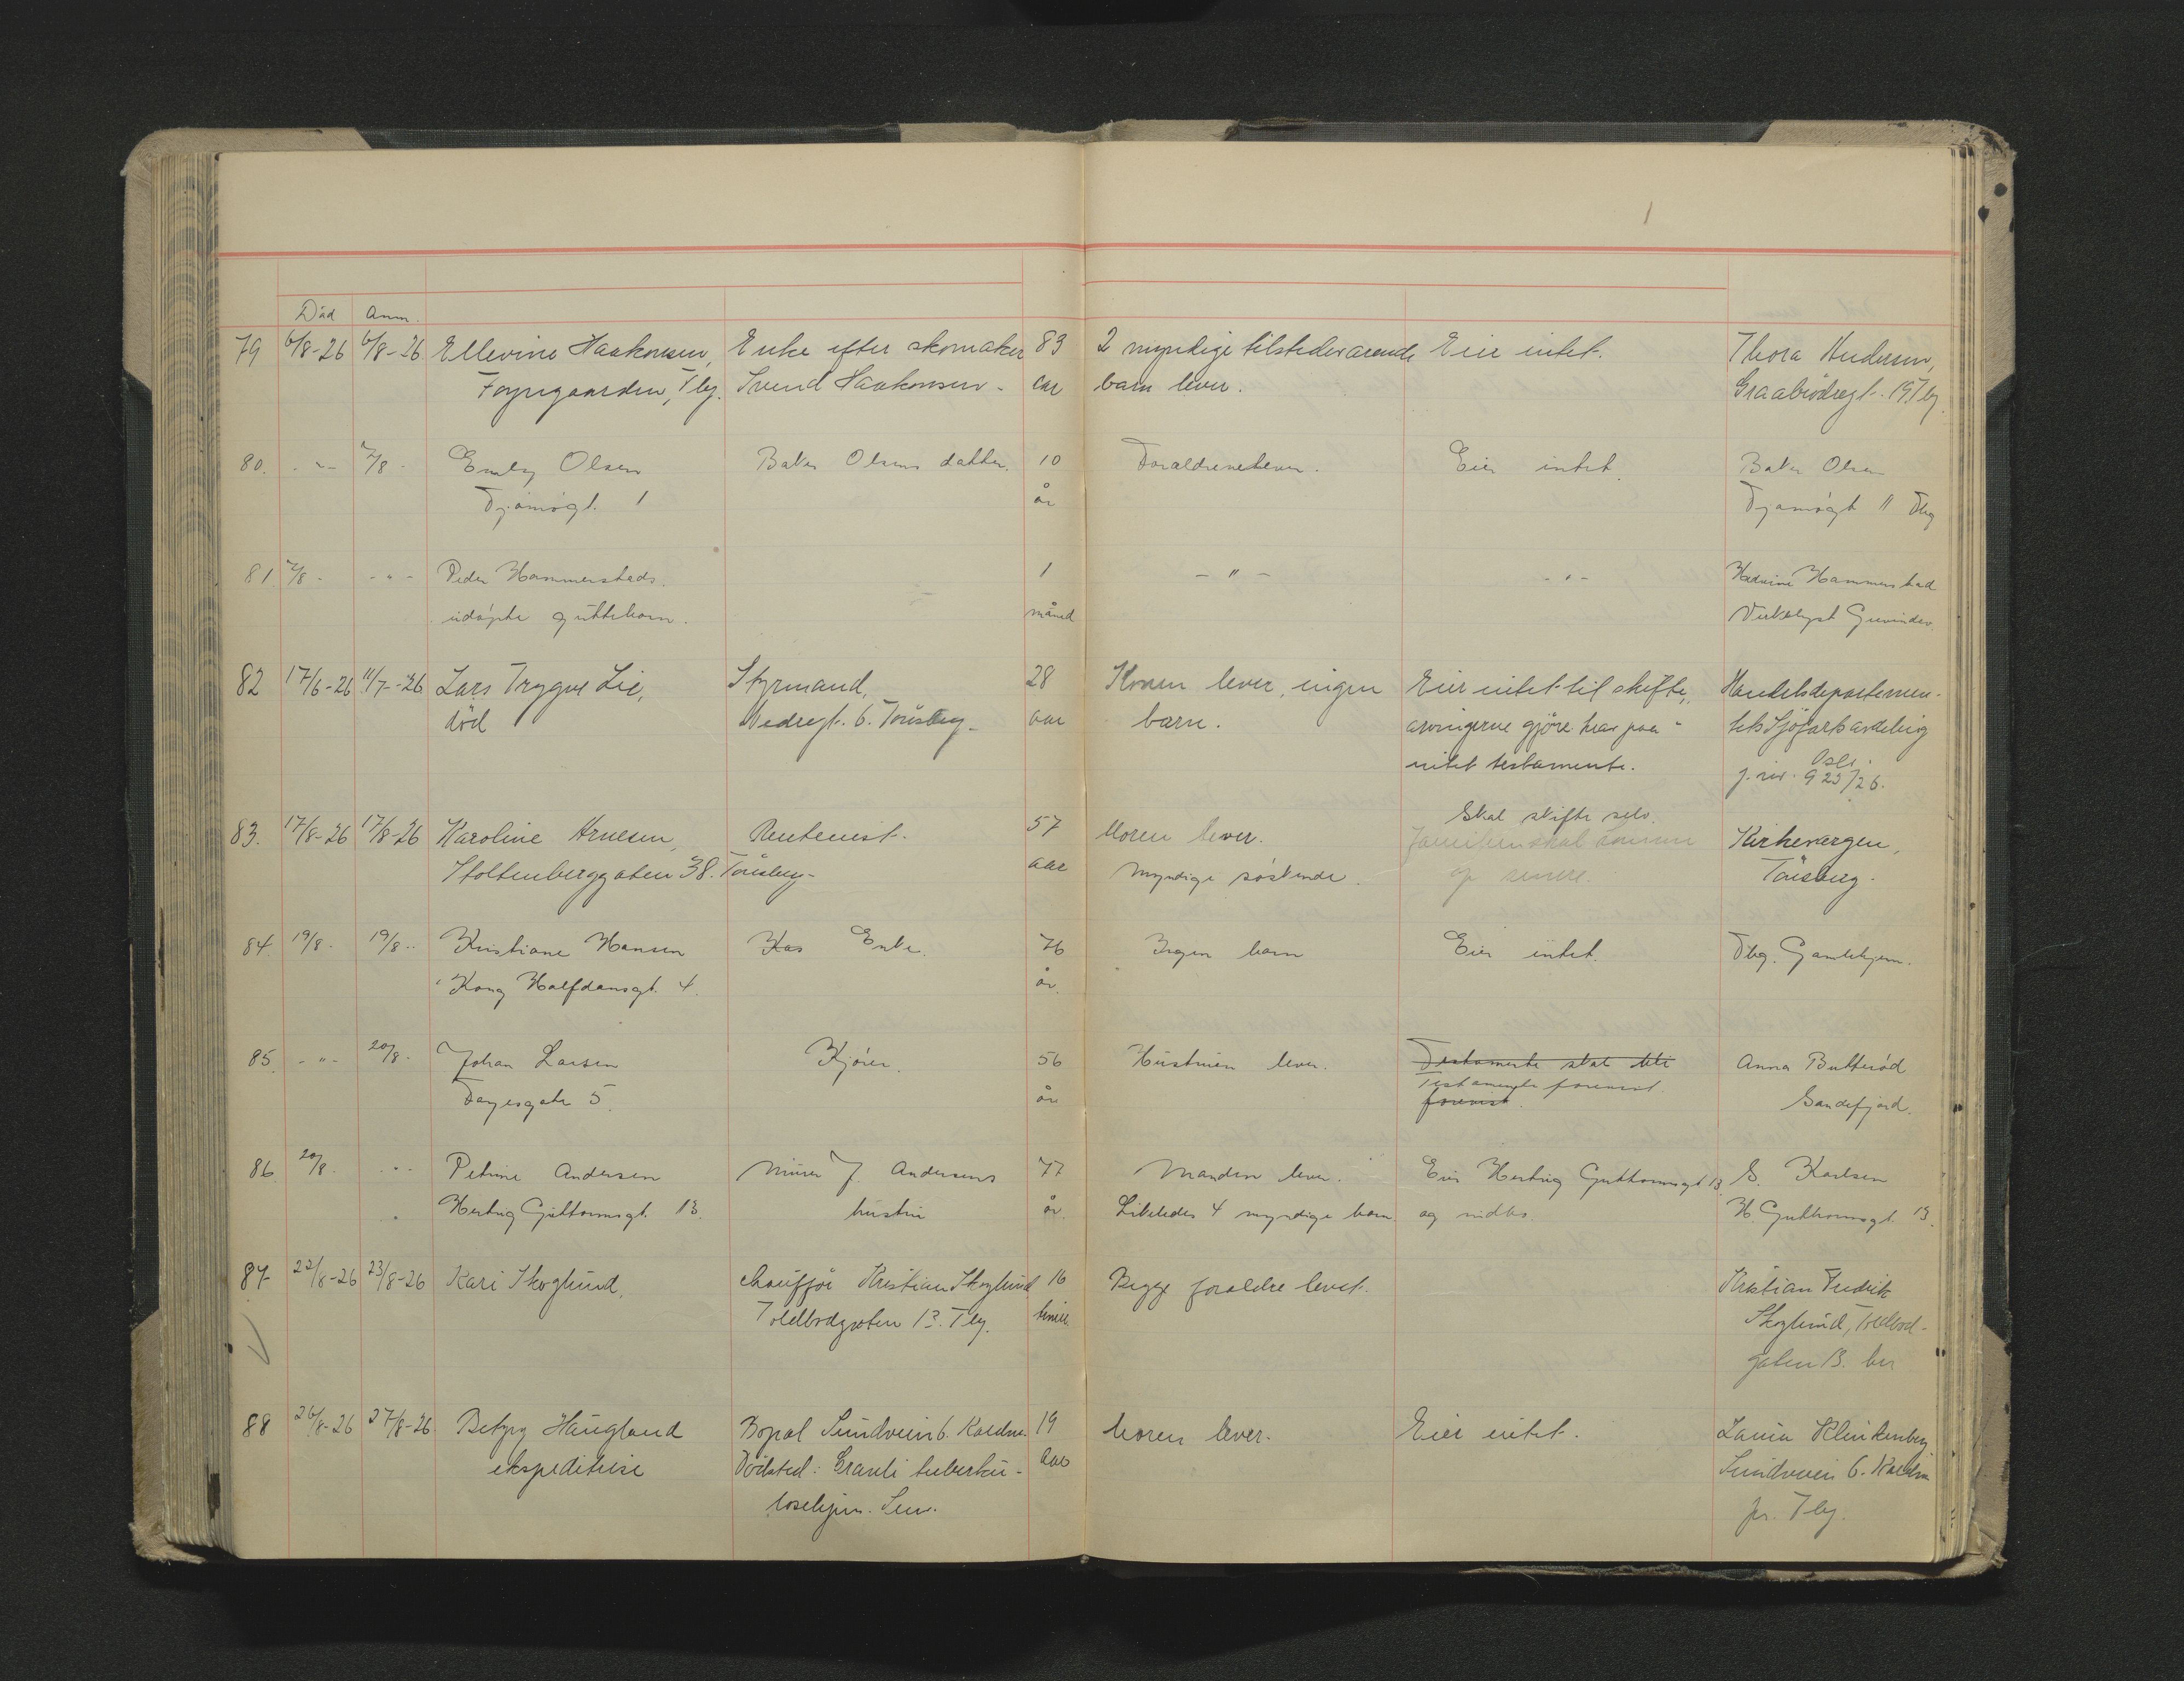 1
Död Anm.
79 6/8-26 6/8-26 Ellevine Haakonsen, Enke efter skomaker 83 2 myndige tilstedeværende Eier intet. Thora Andersen,
Foyngaarden, Tbg. Svend Haakonsen - aar barn lever. Graabrödregt. 19. Tbg.
80. -"- 7/8 - Emly Olsen Baker Olsens datter. 10 Foræld­rene lever. Eier intet. Baker Olsen
Tjømøgt. 1 år Tjømøgt 11 Tbg
81 7/8 - -"- Peder Hammersteds 1 -"- -"- Hammerstad
udøpte guttebarn. måned Virkelyst
82 17/6-26 11/7-26 Lars Trygve Lie, Styrmand, 28 Konen lever, ingen Eier intet til skifte, Handelsdepartemen-
död Nedregt. 6. Tönsberg - aar barn. arvingerne gjöre krav paa - tets Sjöfartsavdeling
intet testamente. Oslo.
j. nr. 923/26.
Skal skifte selv.
83. 17/8-26 17/8-26 Karoline Arnesen, Rentenist. 57 Moren lever. Familien skal komme Kirkevergen,
Stoltenberggaten 38. Tönsberg - aar Myndige søskende. op senere. Tönsberg.
84. 19/8 - 19/8 - Kristiane Hansen Kas Enke. 76 Ingen barn Eier intet. Tbg. Gamlehjem.
Kong Halfdansgt. 4. år.
85. -"- 20/8 - Johan Larsen Kjører. 56 Hustruen lever. Testamente skal Anna Butterød
Testamente forevist.
Farjesgate 5. år forevist. Sandefjord.
86. 20/8 - -"- Petrine Andersen Murer J. Andersens 77 Manden lever. Eier Hertug Guttormsgt 13 S. Karlsen
Hertug Guttormsgt. 13. hustru år. Likeledes 4 myndige barn. og indbo. H. Guttormsgt. 13.
87 22/8-26 23/8-26 Kari Skoglund, chauffør Kristian Skoglund 16 Begge foraldre lever. Kristian Fredrik
Toldbodgaten 13. Tbg. timer Skoglund, Toldbod-
gaten 13. her
88 26/8-26 27/8-26 Betzy Haugland Bopæl Sundveien 6. Kaldnes 19 Moren lever. Eier intet. Laura Klinkenberg
ekspeditrise Dödsted: Granli tuberku- aar Sundveien 6. Kaldnes
losehjem. Sem. pr. Tbg.